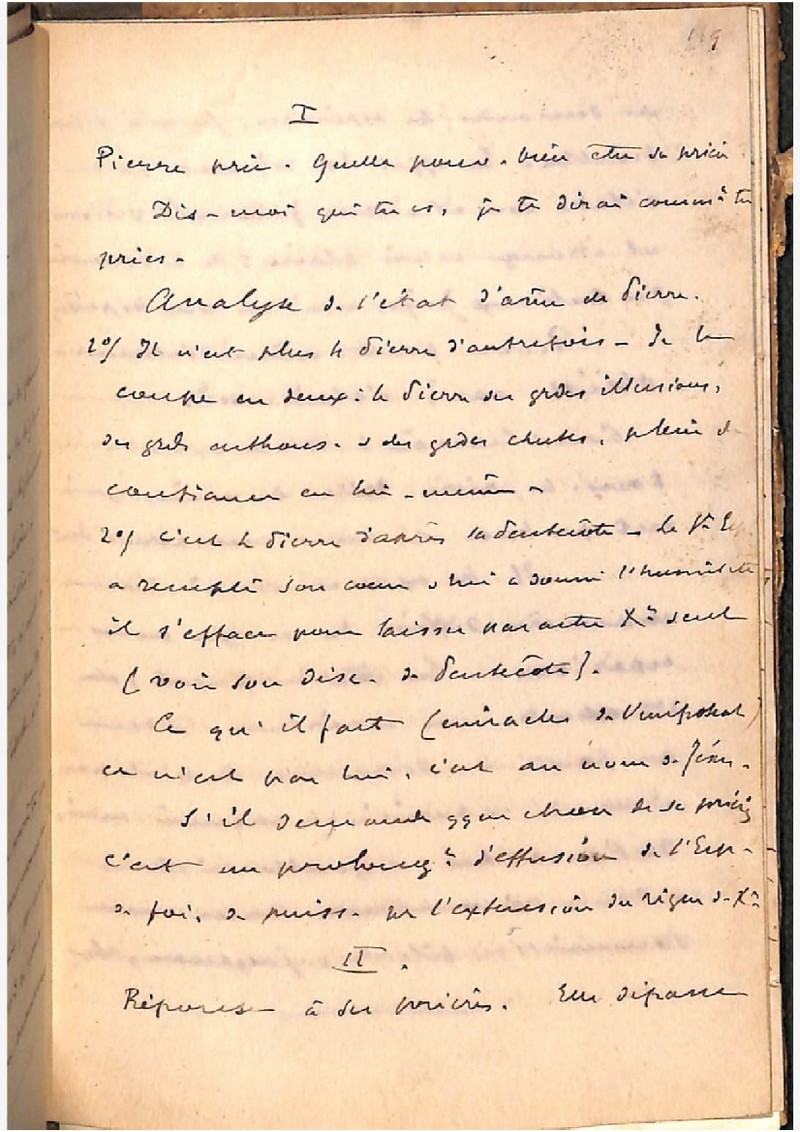 119
I
Pierre prie. Quelle pouv. bien être sa prière
Dis-moi qui tu es, je te dirai commt tu
pries.
Analyse de l'état d'âme de Pierre.
1º/ Il n'est plus le Pierre d'autrefois - Je le
coupe en deux : le Pierre des grdes illusions,
des grds enthous. & des grdes chutes, plein de
confiance en lui-même -
2º/ C'est le Pierre d'après la Pentecôte - Le St Esp
a rempli son cœur & lui a donné l'humilité,
il s'efface pour laisser paraître Xt seul
(voir son disc. de Pentecôte).
Ce qu'il fait (miracles de l'impotent)
ce n'est pas lui, c'est au nom de Jésus.
S'il demande qque chose de sa prière
c'est un prolongt d'effusion de l'Esp.
de foi, de puiss. pr l'extension du règne de Xt
II
Réponse à ses prières. Elle dépasse